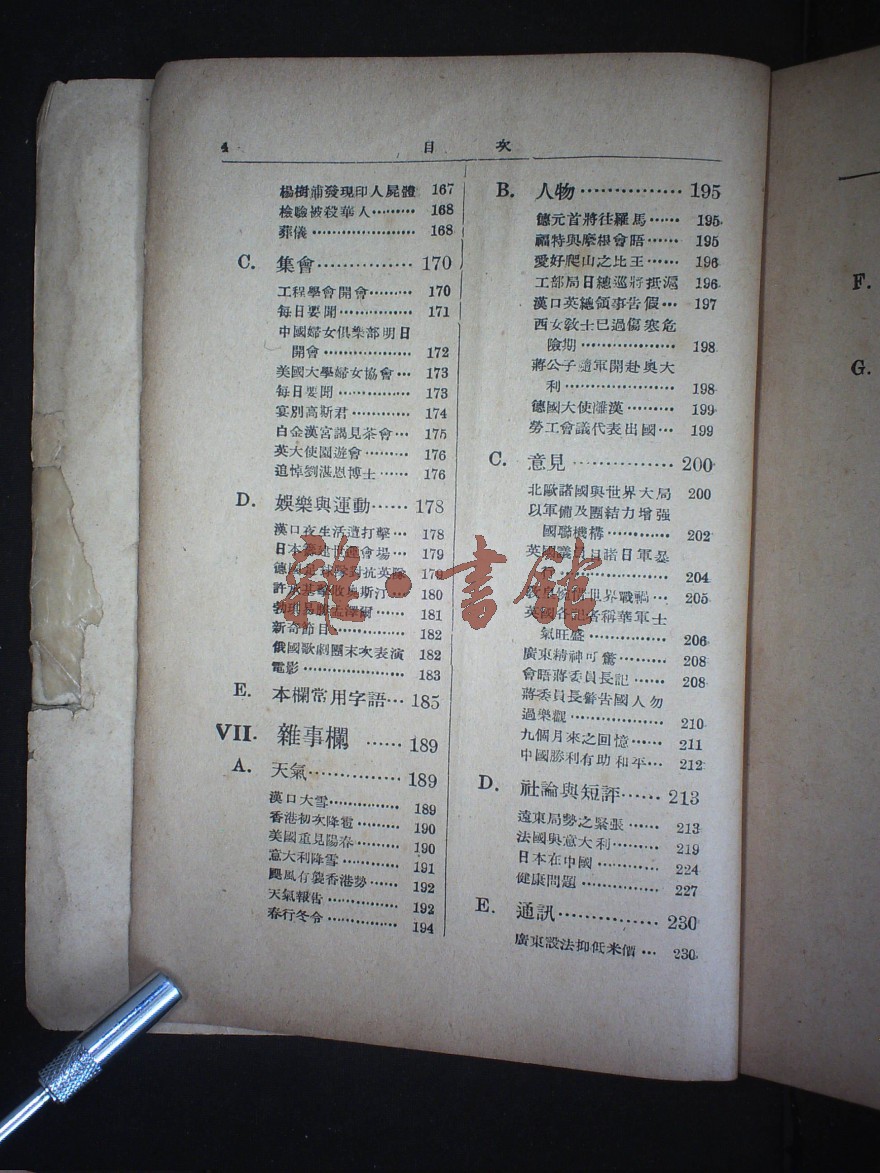 4 目 次
楊樹浦發現印人屍體 167
檢驗被殺華人 ……… 168
葬儀 ……………… 168
C. 集會 …………… 170
工程學會開會 ……… 170
每日要聞 …………… 171
中國婦女俱樂部明日
開會 ……………… 172
美國大學婦女協會 … 173
每日要聞 …………… 173
宴別高斯君 ………… 174
白金漢宮謁見茶會 … 175
英大使園遊會 ……… 176
追悼劉湛恩博士 …… 176
D. 娛樂與運動 …… 178
漢口夜生活遭打擊 … 178
日本 會場 … 179
德國足球隊對抗英隊 179
許承基擊敗 斯汀 … 180
181
新奇節目 …………… 182
俄國歌劇團末次表演 182
電影 ……………… 183
E. 本欄常用字語 … 185
VII. 雜事欄 …… 189
A. 天氣 …………… 189
漢口大雪 …………… 189
香港初次降雹 ……… 190
美國重見陽春 ……… 190
意大利降雪 ………… 191
颶風有襲香港勢 …… 192
天氣報告 …………… 192
春行冬令 …………… 194
B. 人物 …………… 195
德元首將往羅馬 …… 195
福特與摩根會晤 …… 195
愛好爬山之比王 …… 196
工部局日總巡將抵滬 196
漢口英總領事告假 … 197
西女教士已過傷寒危
險期 ……………… 198
蔣公子隨軍開赴奧大
利 ………………… 198
德國大使離漢 ……… 199
勞工會議代表出國 … 199
C. 意見 …………… 200
北歐諸國與世界大局 200
以軍備及團結力增强
國聯機構 ………… 202
英國議員日諾日軍暴
……………… 204
世界戰禍 … 205
英國各記者稱華軍士
氣旺盛 …………… 206
廣東精神可驚 ……… 208
會晤蔣委員長記 …… 208
蔣委員長警告國人勿
過樂觀 …………… 210
九個月來之回憶 …… 211
中國勝利有助和平 … 212
D. 社論與短評 …… 213
遠東局勢之緊張 …… 213
法國與意大利 ……… 219
日本在中國 ………… 224
健康問題 …………… 227
E. 通訊 …………… 230
廣東設法抑低米價 … 230
F.
G.
雜·書館